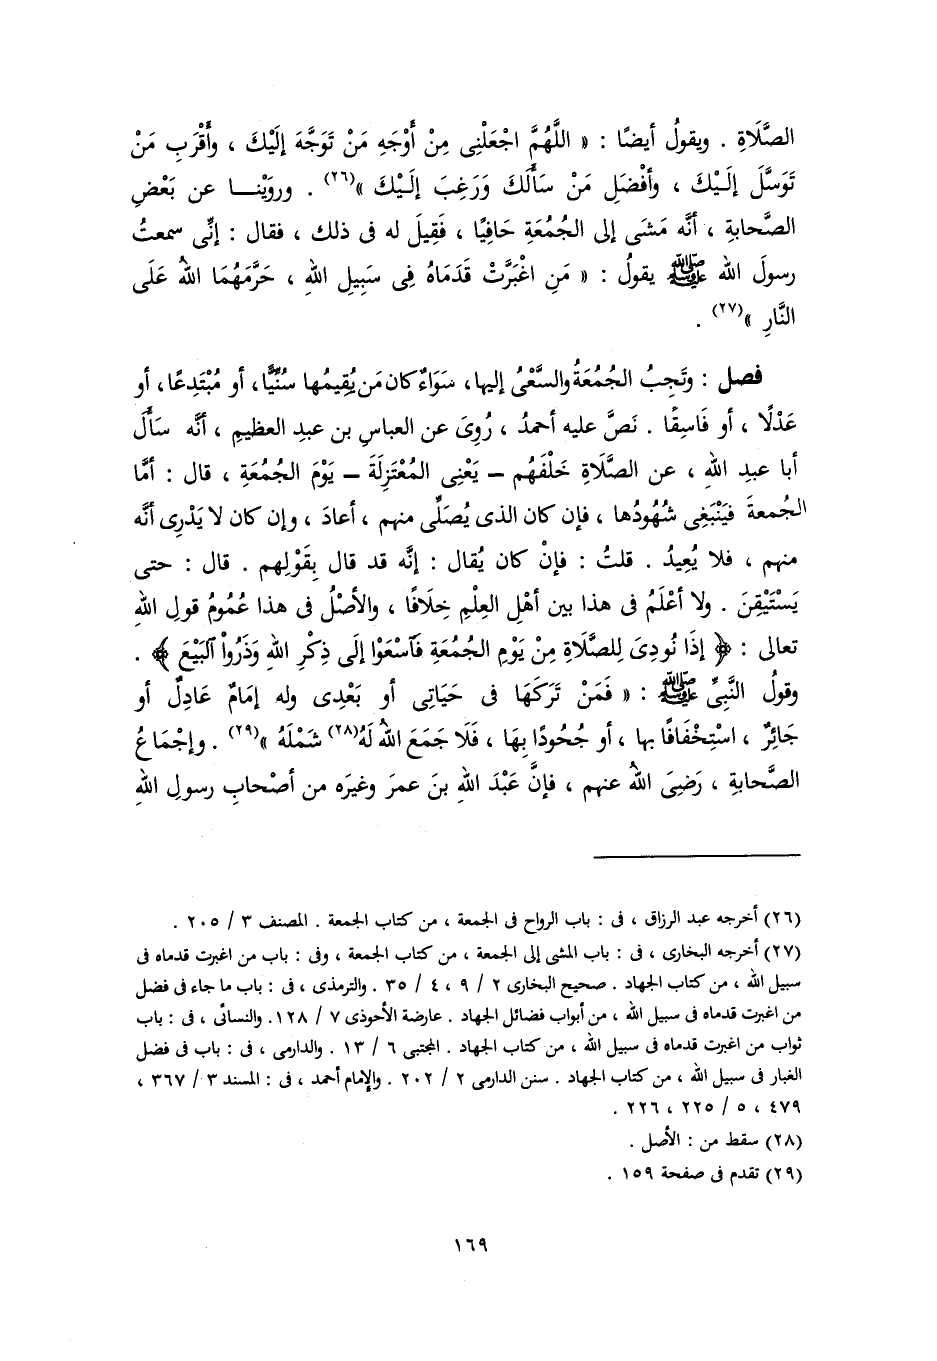 الصَّلَاةِ . ويقولُ أيضًا : « اللَّهُمَّ اجْعَلْنِى مِنْ أَوْجَهِ مَنْ تَوَجَّهَ إلَيْكَ ، وأَقْرَبِ مَنْ
تَوَسَّلَ إلَـيْكَ ، وأفْضَلِ مَنْ سَأَلَكَ وَرَغِبَ إلَـيْكَ »(٢٦) . وروَيْنـــا عن بَعْضِ
الصَّحابةِ ، أنَّه مَشَى إلى الجُمُعَةِ حَافِيًا ، فَقِيلَ له فى ذلك ، فقال : إنِّى سمعتُ
رسولَ الله ﷺ يقولُ : « مَنِ اغْبَرَّتْ قَدَمَاهُ فِى سَبِيلِ اللهِ ، حَرَّمَهُمَا اللهُ عَلَى
النَّارِ »(٢٧) .
فصل : وتَجِبُ الجُمُعَةُ والسَّعْىُ إليها، سَوَاءٌ كان مَن يُقِيمُها سُنِّيًّا، أو مُبْتَدِعًا، أو
عَدْلًا ، أو فَاسِقًا . نَصَّ عليه أحمدُ ، رُوِىَ عن العباسِ بن عبدِ العظيمِ ، أنَّه سَأَلَ
أبا عبدِ اللهِ ، عن الصَّلَاةِ خَلْفَهُم – يَعْنِى المُعْتَزِلَةَ – يَوْمَ الجُمُعَةِ ، قال : أمَّا
الجُمعةَ فيَنْبَغِى شُهُودُها ، فإن كان الذى يُصَلِّى منهم ، أعادَ ، وإن كان لا يَدْرِى أنَّه
منهم ، فلا يُعِيدُ . قلتُ : فإنْ كان يُقال : إنَّه قد قال بِقَوْلِهم . قال : حتى
يَسْتَيْقِنَ . ولا أعْلَمُ فى هذا بين أهْلِ العِلْمِ خِلَافًا ، والأصْلُ فى هذا عُمُومُ قولِ اللهِ
تعالى : ﴿ إذَا نُودِىَ لِلصَّلَاةِ مِنْ يَوْمِ الجُمُعَةِ فَآسْعَوْا إلَى ذِكْرِ اللهِ وَذَرُواْ آلبَيْعَ ﴾ .
وقولُ النَّبِىِّ ﷺ : « فَمَنْ تَرَكَهَا فى حَيَاتِى أو بَعْدِى وله إمَامٌ عَادِلٌ أو
جَائِرٌ ، اسْتِخْفَافًا بها ، أو جُحُودًا بِهَا ، فَلَا جَمَعَ اللهُ لَهُ(٢٨) شَمْلَهُ »(٢٩) . وإجْمَاعُ
الصَّحابةِ ، رَضِىَ اللهُ عنهم ، فإنَّ عَبْدَ اللهِ بنَ عمرَ وغيرَه من أصْحابِ رسولِ اللهِ
(٢٦) أخرجه عبد الرزاق ، فى : باب الرواح فى الجمعة ، من كتاب الجمعة . المصنف ٣ / ٢٠٥ .
(٢٧) أخرجه البخارى ، فى : باب المشى إلى الجمعة ، من كتاب الجمعة ، وفى : باب من اغبرت قدماه فى
سبيل الله ، من كتاب الجهاد . صحيح البخارى ٢ / ٩ ، ٤ / ٣٥ . والترمذى ، فى : باب ما جاء فى فضل
من اغبرت قدماه فى سبيل الله ، من أبواب فضائل الجهاد . عارضة الأحوذى ٧ / ١٢٨. والنسائى ، فى : باب
ثواب من اغبرت قدماه فى سبيل الله ، من كتاب الجهاد . المجتبى ٦ / ١٣ . والدارمى ، فى : باب فى فضل
الغبار فى سبيل الله ، من كتاب الجهاد . سنن الدارمى ٢ / ٢٠٢ . والإمام أحمد ، فى : المسند ٣ / ٣٦٧ ،
٤٧٩ ، ٥ / ٢٢٥ ، ٢٢٦ .
(٢٨) سقط من : الأصل .
(٢٩) تقدم فى صفحة ١٥٩ .
١٦٩